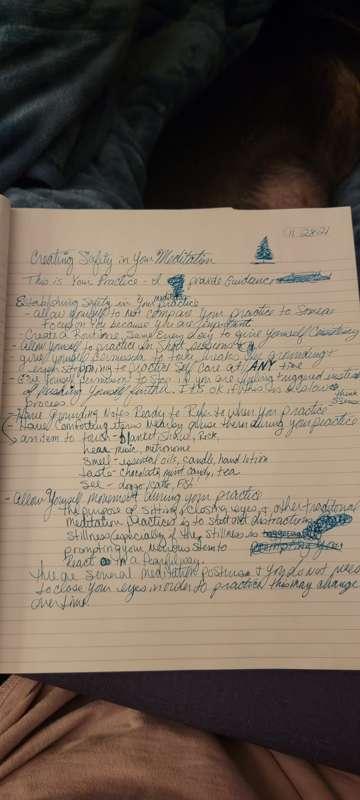 11.28.21
Creating Safety in Your Meditation
This is Your Practice - I provide Guidance
Establishing Safety in Your meditation Practice
- allow yourself to not compare your practice to someone
focus on You because you are important
- Create a Routine, Same Every day to give yourself Consistency
- Allow yourself to practice in short sessions &
give yourself permission to take breaks for grounding &
even stopping to practice Self Care at ANY time
- Give Yourself permission to stop if you are feeling triggered instead
of pushing yourself further. It's ok if this is a slow
process. think 5 senses
- Have Grounding Notes Ready to Refer to when you practice
- Have Comforting items Nearby & use them during your practice
an item to touch - blanket, Shawl, Rock,
hear music, metronome
Smell - essential oils, candle, hand lotion
taste - chocolate, mint candy, tea
See - dogs, cats, Fish
- Allow Yourself movement during your practice
The purpose of sitting, closing eyes, & other traditional
meditation practices is to shut out distractions
Stillness (especially if the stillness is
prompting your Nervous System to
React in a fearful way.
There are several meditation postures & You do not need
to close your eyes in order to practice this may change
over time